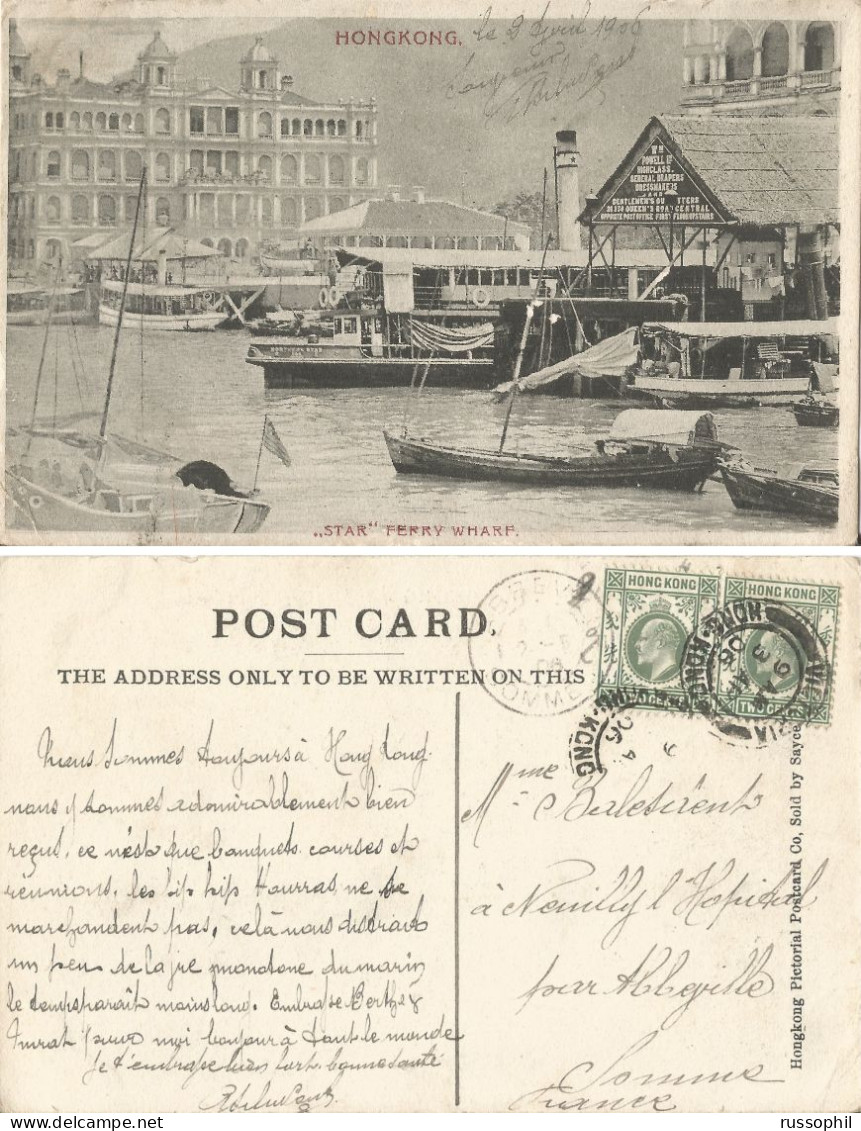 HONGKONG.
le 2 Avril 1906
Wm
POWELL Ld
HIGHCLASS.
GENERAL DRAPERS
DRESSMAKERS
AND
GENTLEMEN'S OUTFITTERS
QUEEN'S ROAD CENTRAL
OPPOSITE POST OFFICE FIRST FLOOR UPSTAIRS
„STAR" FERRY WHARF.
POST CARD.
THE ADDRESS ONLY TO BE WRITTEN ON THIS
HONG KONG
HONG KONG
TWO CENTS
TWO CENTS
VICTORIA
HONG-KONG
HONG-KONG
Nous sommes toujours à Hong Kong
nous y sommes admirablement bien
reçus, ce n'est que banquets courses et
réunions. les hip hip Hourras ne se
marchandent pas, celà nous distrait
un peu de la vie monotone du marin
le temps paraît moins long. Embrasse Berthe &
pour moi bonjour à tout le monde
Je t'embrasse bien fort. bonne santé
Mme
à Neuilly l'Hopital
par Abbeville
Somme
France
Hongkong Pictorial Postcard Co, Sold by Sayce
russophil.com